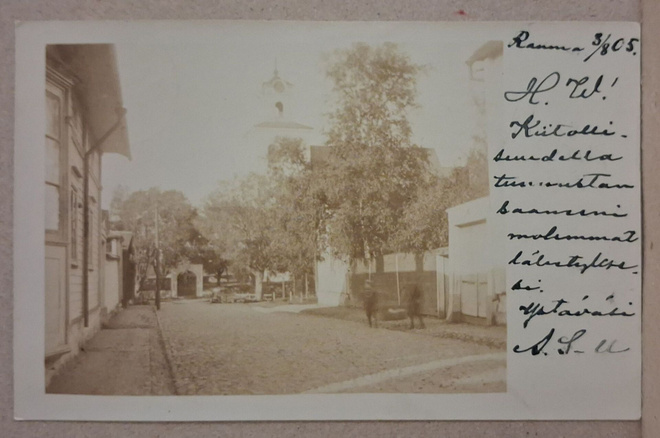 Rauma 3/8 05.
H. W!
Kiitolli-
suudella
tunnustan
saanseni
molemmat
lähetykse-
si.
Ystäväsi
A. S-u